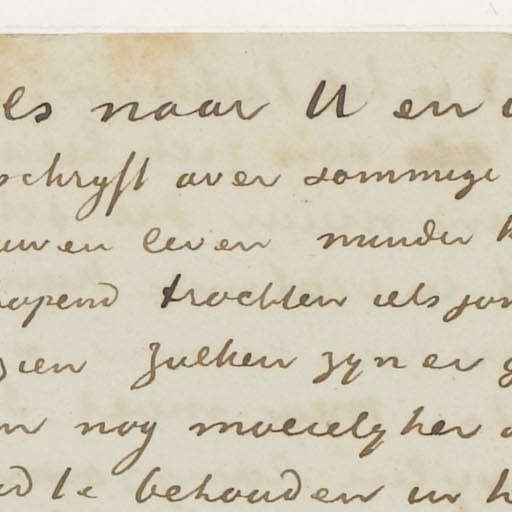 els naar U en
schryft over sommige
uwen leven minder
hopend trachten iets
zien zulken zyn er
en nog moeielyker
te behouden in